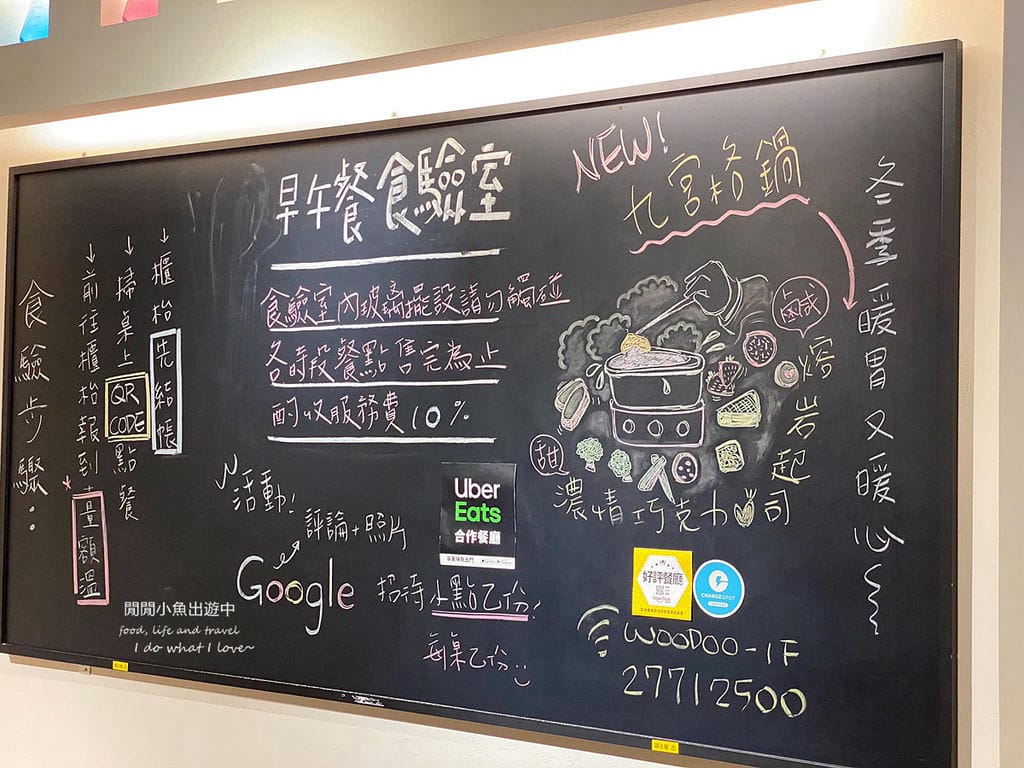 早午餐食驗室
食驗室內玻璃擺設請勿觸碰
各時段餐點售完為止
酌收服務費10%
NEW!
九宮格鍋
冬季暖胃又暖心
鹹
熔岩起司
甜
濃情巧克力
食驗步驟:
↓前往櫃枱報到 量額溫
↓掃桌上QR CODE點餐
↓櫃枱先結帳
活動!
評論+照片
Google 招待小點乙份!
每桌乙份
Uber
Eats
合作餐廳
好評餐廳
CHARGESPOT
WOODOO-1F
27712500
閒閒小魚出遊中
food, life and travel
I do what I love~